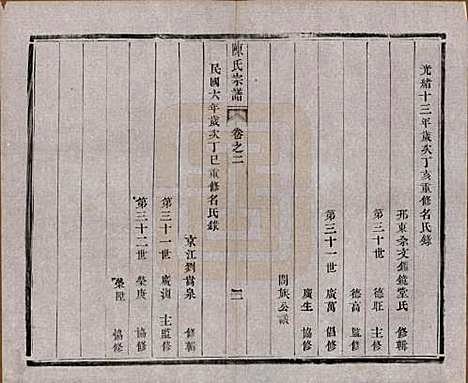 光緒十三年歲次丁亥重修名氏錄
邢東余文鏡堂氏　修輯
第三十世　德旺　主修
德高　監修
第三十一世　廣萬　倡修
廣生　協修
闔族公議
陳氏宗譜
卷之二
二
民國六年歲次丁巳重修名氏錄
京江劉貴泉　修輯
第三十一世　廣湏　主監修
第三十二世　榮庚　協修
榮　協修